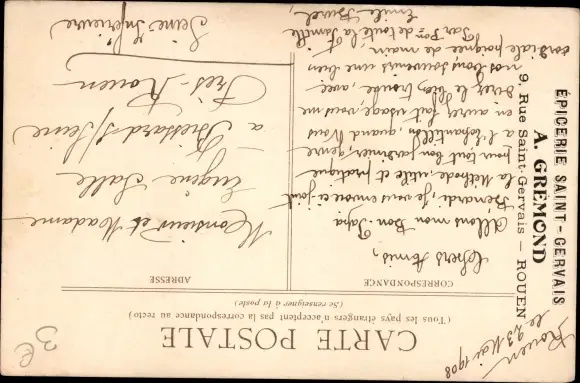 CARTE POSTALE
(Tous les pays étrangers n'acceptent pas la correspondance au recto)
(Se renseigner à la poste)
CORRESPONDANCE
ADRESSE
Rouen
le 23 Mai 1908
Chers Amis,
Allons mon Bon Papa
Benardi, je vous envoie ci-joint
la Méthode, utile et pratique
pour tout bon jardinier, genre
à l'échantillon, quand Vous
en aurez fait usage, vous me
direz le bien trouvé, avec
nos bons souvenirs une bien
cordiale poignée de main
Par Pon de toute la famille
Emile Burel,
Monsieur et Madame
Eugène Salle
à Brestard s/Seine
Près Rouen
Seine Inférieure
EPICERIE SAINT-GERVAIS
A. GRÉMOND
9, Rue Saint-Gervais — ROUEN
3E